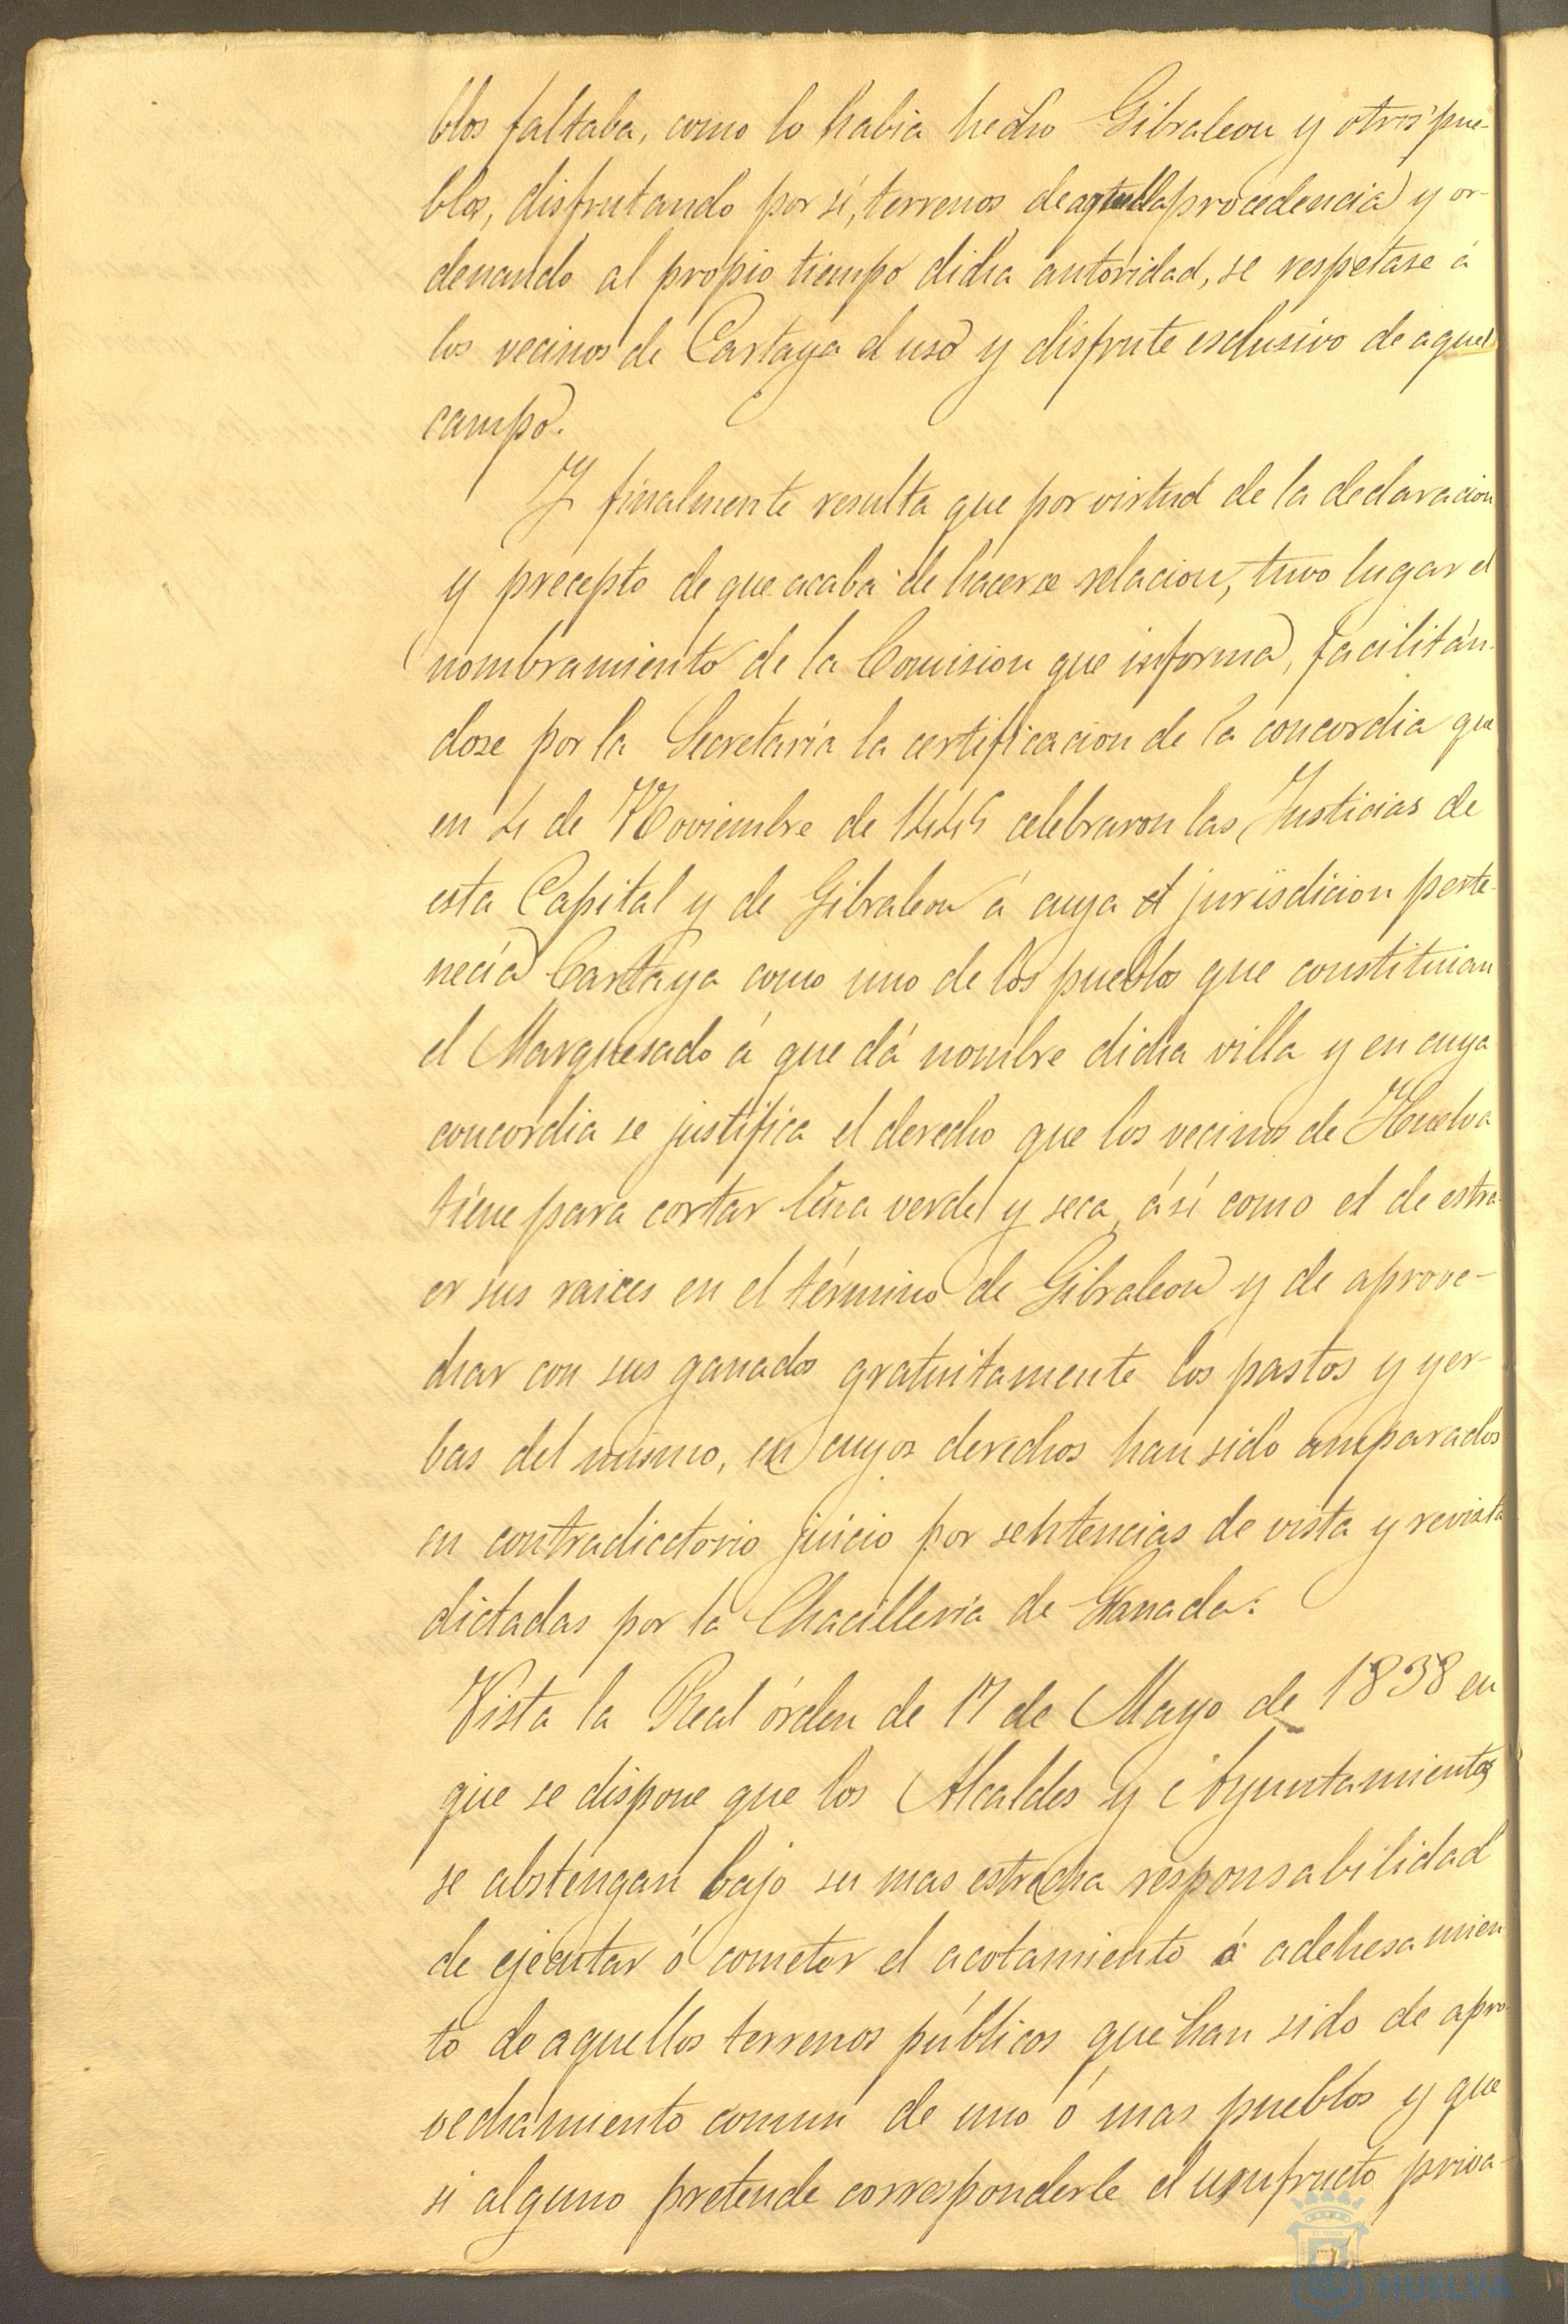 blos faltaba, como lo habia hecho Gibraleon y otros pue-
blos, disfrutando por sí, terrenos de aquella procedencia y or-
denando al propio tiempo dicha autoridad, se respetase á
los vecinos de Cartaya el uso y disfrute esclusivo de aquel
campo.
Y finalmente resulta que por virtud de la declaracion
y precepto de que acaba de hacerse relacion, tuvo lugar el
nombramiento de la Comision que informa, facilitán-
dose por la Secretaría la certificacion de la concordia que
en 4 de Noviembre de celebraron las Justicias de
esta Capital y de Gibraleon á cuya jurisdicion perte-
necía Cartaya como uno de los pueblos que constituian
el Marquesado á que dá nombre dicha villa y en cuya
concordia se justifica el derecho que los vecinos de Huelva
tiene para cortar leña verde y seca, así como el de estra-
er sus raices en el término de Gibraleon y de aprove-
char con sus ganados gratuitamente los pastos y yer-
bas del mismo, en cuyos derechos han sido amparados
en contradicctorio juicio por sentencias de vista y revista
dictadas por la Chacilleria de Granada:
Vista la Real órden de 17 de Mayo de 1838 en
que se dispone que los Alcaldes y Ayuntamientos
se abstengan bajo su mas estrecha responsabilidad
de ejecutar ó cometer el acotamiento ó adehesamien
to de aquellos terrenos públicos que han sido de apro-
vechamiento comun de uno ó mas pueblos y que
si alguno pretende corresponderle el usufructo priva-
HUELVA